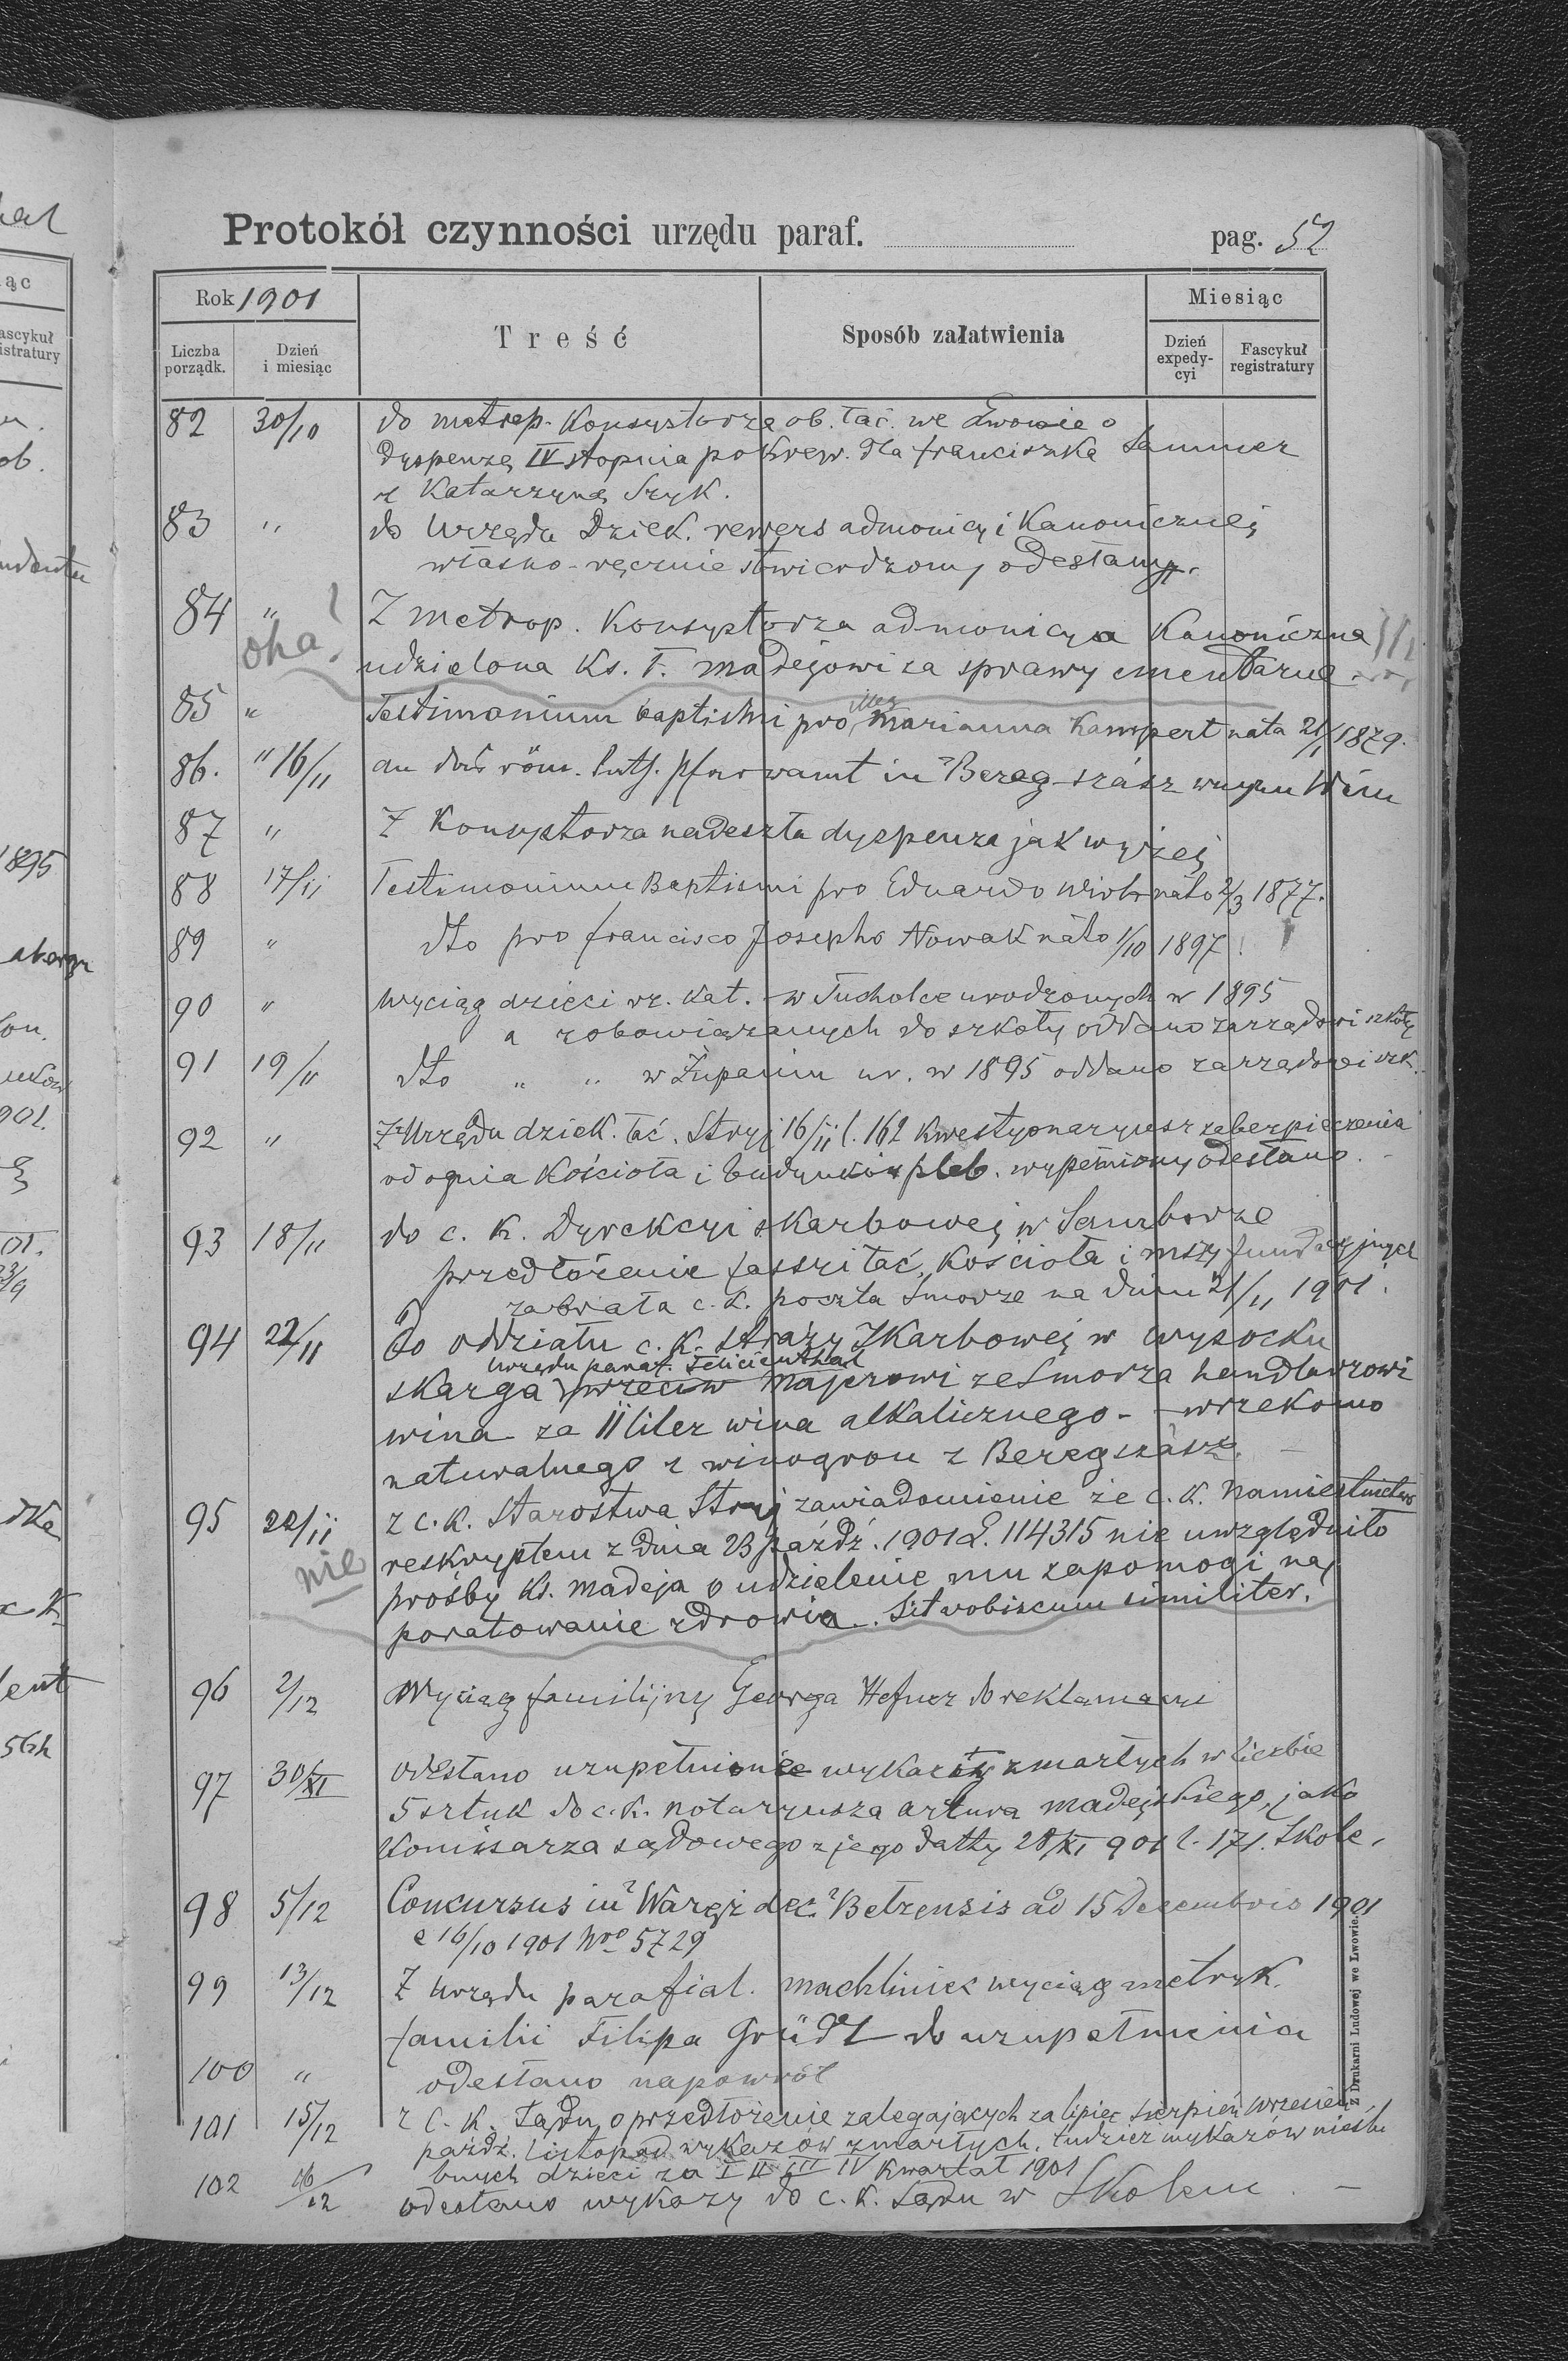 Protokół czynności urzędu paraf. pag. 52
Rok 1901
Treść
Sposób załatwienia
Miesiąc
Liczba porządk.
Dzień i miesiąc
Dzień expedycyi
Fascykuł registratury
82 30/10 do metrop. Konsystorza ob. łać. we Lwowie o
dyspenzę IV stopnia pokrew. dla Franciszka Lammer
z Katarzyną Szyk.
83 " do Urzędu Dziek. rewers admonicyi Kanonicznej
własno-ręcznie stwierdzony odesłany.
84 " Z metrop. Konsystorza admonicya Kanoniczna
oha! udzielona Ks. F. Madejowi za sprawy cmentarne
85 " Testimonium baptismi pro Marianna Kampert nata 21/1 1879.
86. " 16/11 an das röm. kath. Pfarramt in Bereg-szász wegen Wein
87 " Z Konsystorza nadeszła dyspenza jak wyżej
88 17/11 Testimonium Baptismi pro Eduardo nato 2/3 1877.
89 " dto pro Francisco Josepho Nowak nato 1/10 1897
90 " Wyciąg dzieci rz. kat. w Tucholce urodzonych w 1895
a zobowiązanych do szkoły oddano zarządowi szkoły
91 19/11 dto " " w Żupaniu ur. w 1895 oddano zarządowi szk.
92 " Z Urzędu dziek. łać. Stryj 16/11 l. 162 kwestyonaryusz zabezpieczenia
od ognia Kościoła i budynków pleb. wypełniony odesłano.
93 18/11 do c. K. Dyrekcyi skarbowej w Samborze
przedłożenie fassyi łać. Kościoła i mszy fundacyjnych
zabrała c. k. poczta Smorze na dniu 21/11 1901.
94 22/11 do oddziału c. K. straży Skarbowej w Wysocku
urzędu paraf. Felicienthal
skarga przeciw Majerowi ze Smorza handlarzowi
wina za 11 liter wina alkalicznego - wrzekomo
naturalnego z winogron z Beregszász.
95 22/11 z c. K. Starostwa Stryj zawiadomienie że c. K. Namiestnictwo
reskryptem z dnia 23 paźdź. 1901 L. 114315 nie uwzględniło
nie prośby Ks. Madeja o udzielenie mu zapomogi na
poratowanie zdrowia. Sit vobiscum similiter.
96 2/12 Wyciąg familijny Georga Hefner do reklamacyi
97 30/XI odesłano uzupełnione wykazy zmarłych w liczbie
5 sztuk do c. k. notaryusza Artura Madejskiego, jako
Komisarza sądowego z jego datty 28/XI 901 l. 171. Skole.
98 5/12 Concursus in Waręż dec. Bełzensis ad 15 Decembris 1901
e 16/10 1901 Nro 5729
99 13/12 Z Urzędu parafial. Machliniec wyciąg metryk.
familii Filipa Gründl do uzupełnienia
100 " odesłano napowrót
101 15/12 z C. K. Sądu o przedłożenie zalegających za lipiec sierpień wrzesień
paźdź. listopad wykazów zmarłych, tudzież wykazów nieślu
bnych dzieci za I II III IV kwartał 1901
102 16/12 odesłano wykazy do c. K. Sądu w Skolem. -
Z Drukarni Ludowej we Lwowie.